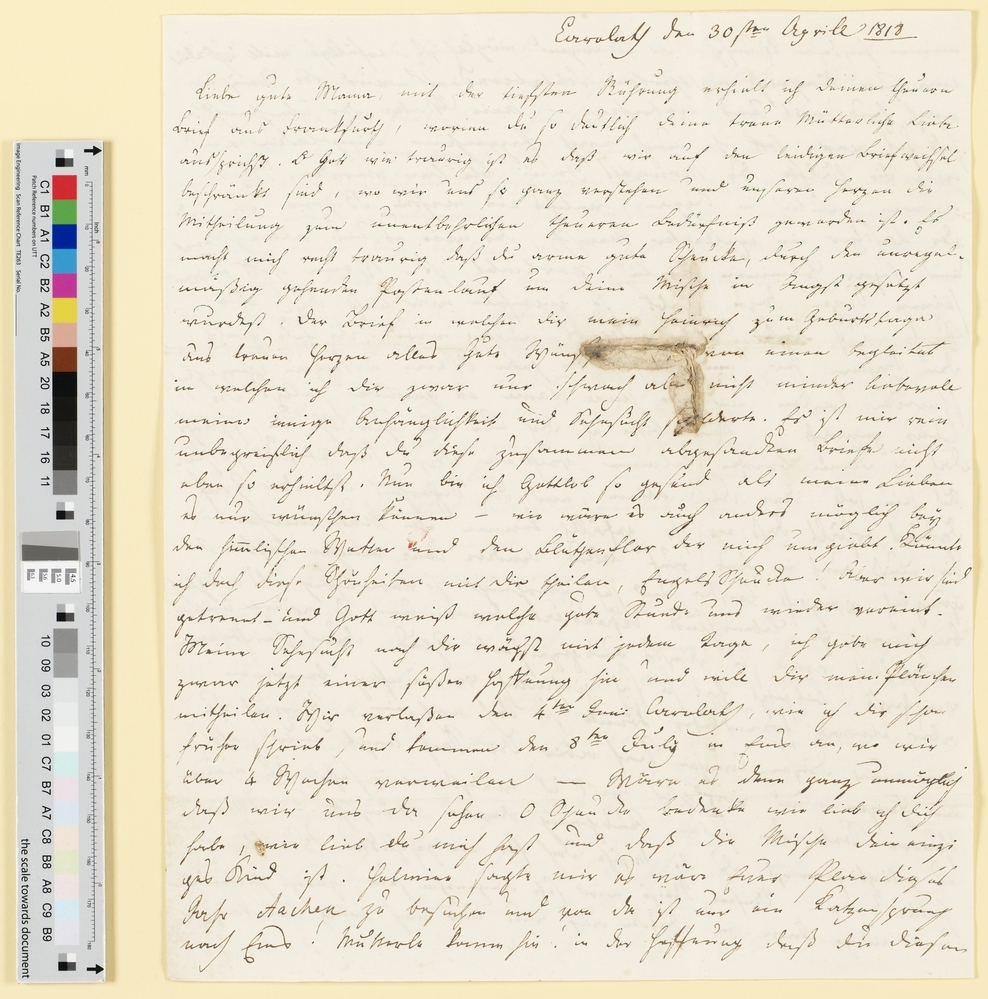 Carolath den 30sten Aprill 1818
Liebe gute Mama, mit der tiefsten Rührung erhielt ich deinen theuren
Brief aus Frankfurth, worinn du so deutlich deine treue Mütterliche Liebe
aussprichst. O Gott wie traurig ist es daß wir auf den leidigen Briefwechsel
beschränkt sind, wo wir uns so ganz verstehen und unseren Herzen die
Mittheilung zum unentbehrlichen theueren Bedürfniß geworden ist. Es
macht mich recht traurig daß du arme gute Schnucke, durch den unregel-
mäßig gehenden Postenlauf um deine Mische in Angst gesetzt
wurdest. Der Brief in welchen dir mein Heinrich zum Geburtstage
aus treuen Herzen alles Gute Wünscht von einen begleitet
in welchen ich dir zwar nur schwach aber nicht minder liebevoll
meine innige Anhänglichkeit und Sehnsucht schilderte. Es ist mir rein
unbegreiflich daß du diese zusammen abgesandten Briefe nicht
eben so erhieltst. Nun bin ich Gottlob so gesund als meine Lieben
es nur wünschen können – wie wäre es auch anders möglich bey
den himlischen Wetter und den Blüthenflor der mich umgiebt. Könnte
ich doch diese Schönheiten mit dir theilen, Engels Schnucke! Aber wir sind
getrennt – und Gott weiß welche gute Stunde uns wieder vereint.
Meine Sehnsucht nach dir wächst mit jedem Tage, ich gebe mich
zwar jetzt einer süßen Hoffnung hin und will dir mein Plänchen
mittheilen. Wir verlaßen den 4ten Juni Carolath, wie ich dir schon
früher schrieb, und kommen den 8ten July in Ems an, wo wir
über 4 Wochen verweilen — Wäre es denn ganz unmöglich
daß wir uns da sehen. O Schnucke bedenke wie lieb ich dich
habe, wie lieb du mich hast und daß die Mische dein einzi
ges Kind ist. Helmine sagte mir es wäre euer Plan dieses
Jahr Aachen zu besuchen und von da ist nur ein Katzensprung
nach Ems! Mutterle komm hin! in der Hoffnung daß du diesen